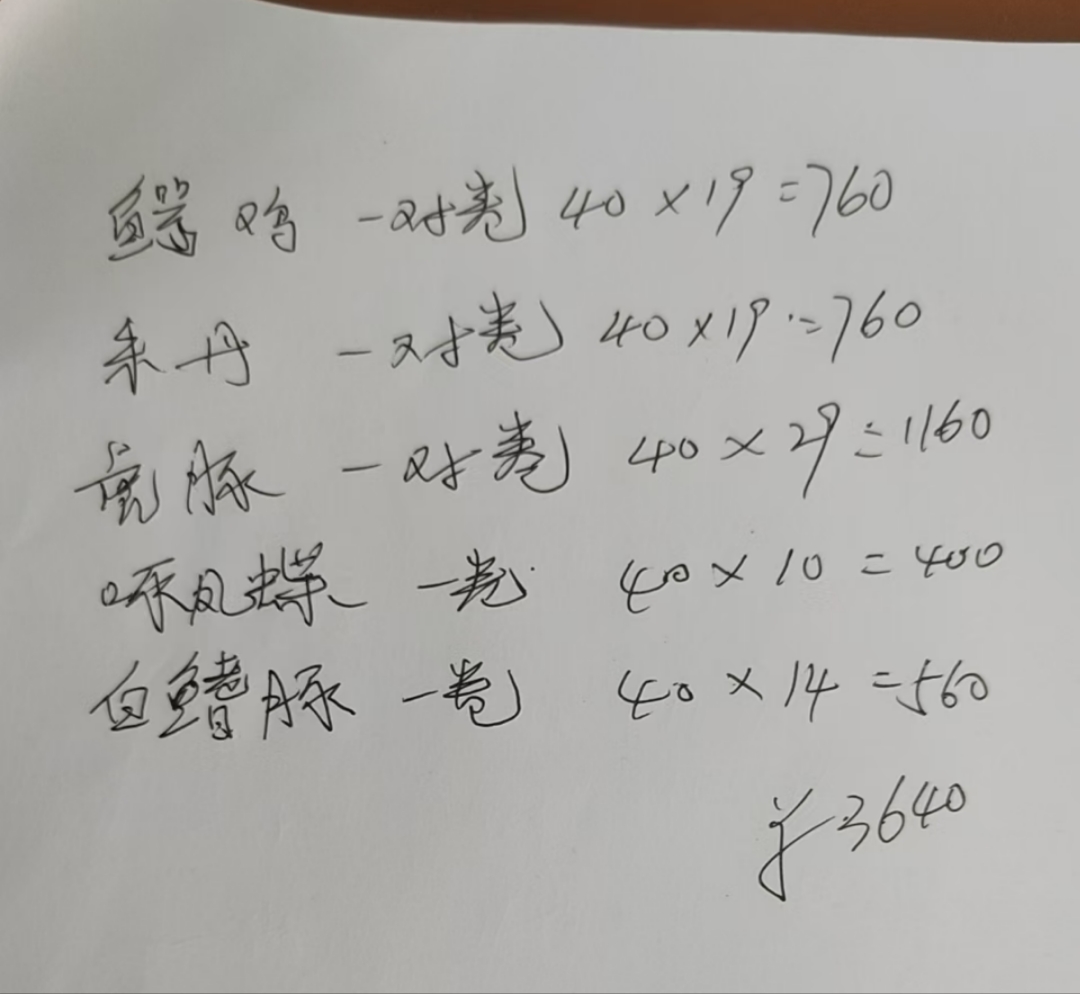 鳄鸡 一对卷 40×19=760
朱丹 一对卷 40×19=760
虎豚 一对卷 40×29=1160
凤蝶 一卷 40×10=400
白鳍豚 一卷 40×14=560
¥3640